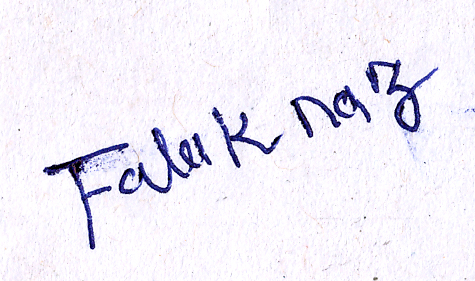 Falak naz